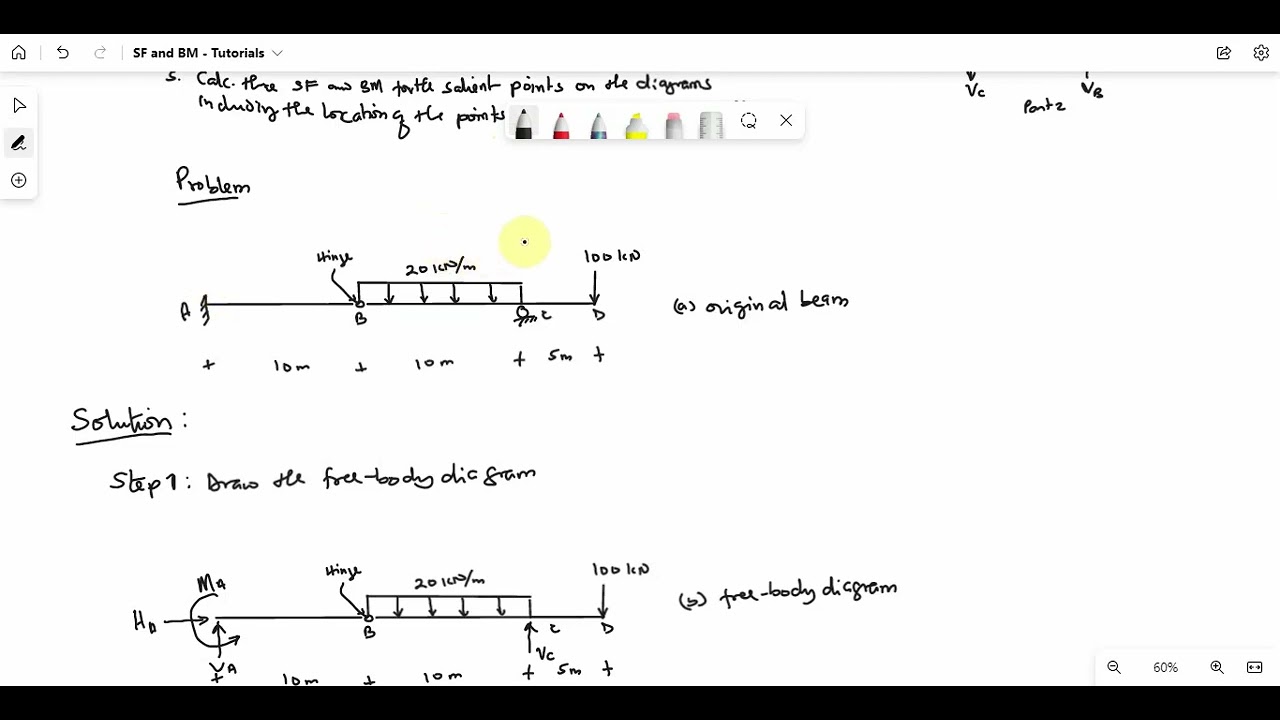 SF and BM - Tutorials
5. Calc. three SF and BM for the salient points on the digrams
including the location of the points
VC
VB
Part 2
Problem
Hinge
20 kN/m
100 kN
A
B
C
D
(a) original beam
10m
10m
5m
Solution:
Step 1: Draw the free-body diagram
Hinge
20 kN/m
100 kN
MA
HA
B
C
D
(b) free-body diagram
VA
VC
10m
10m
5m
60%